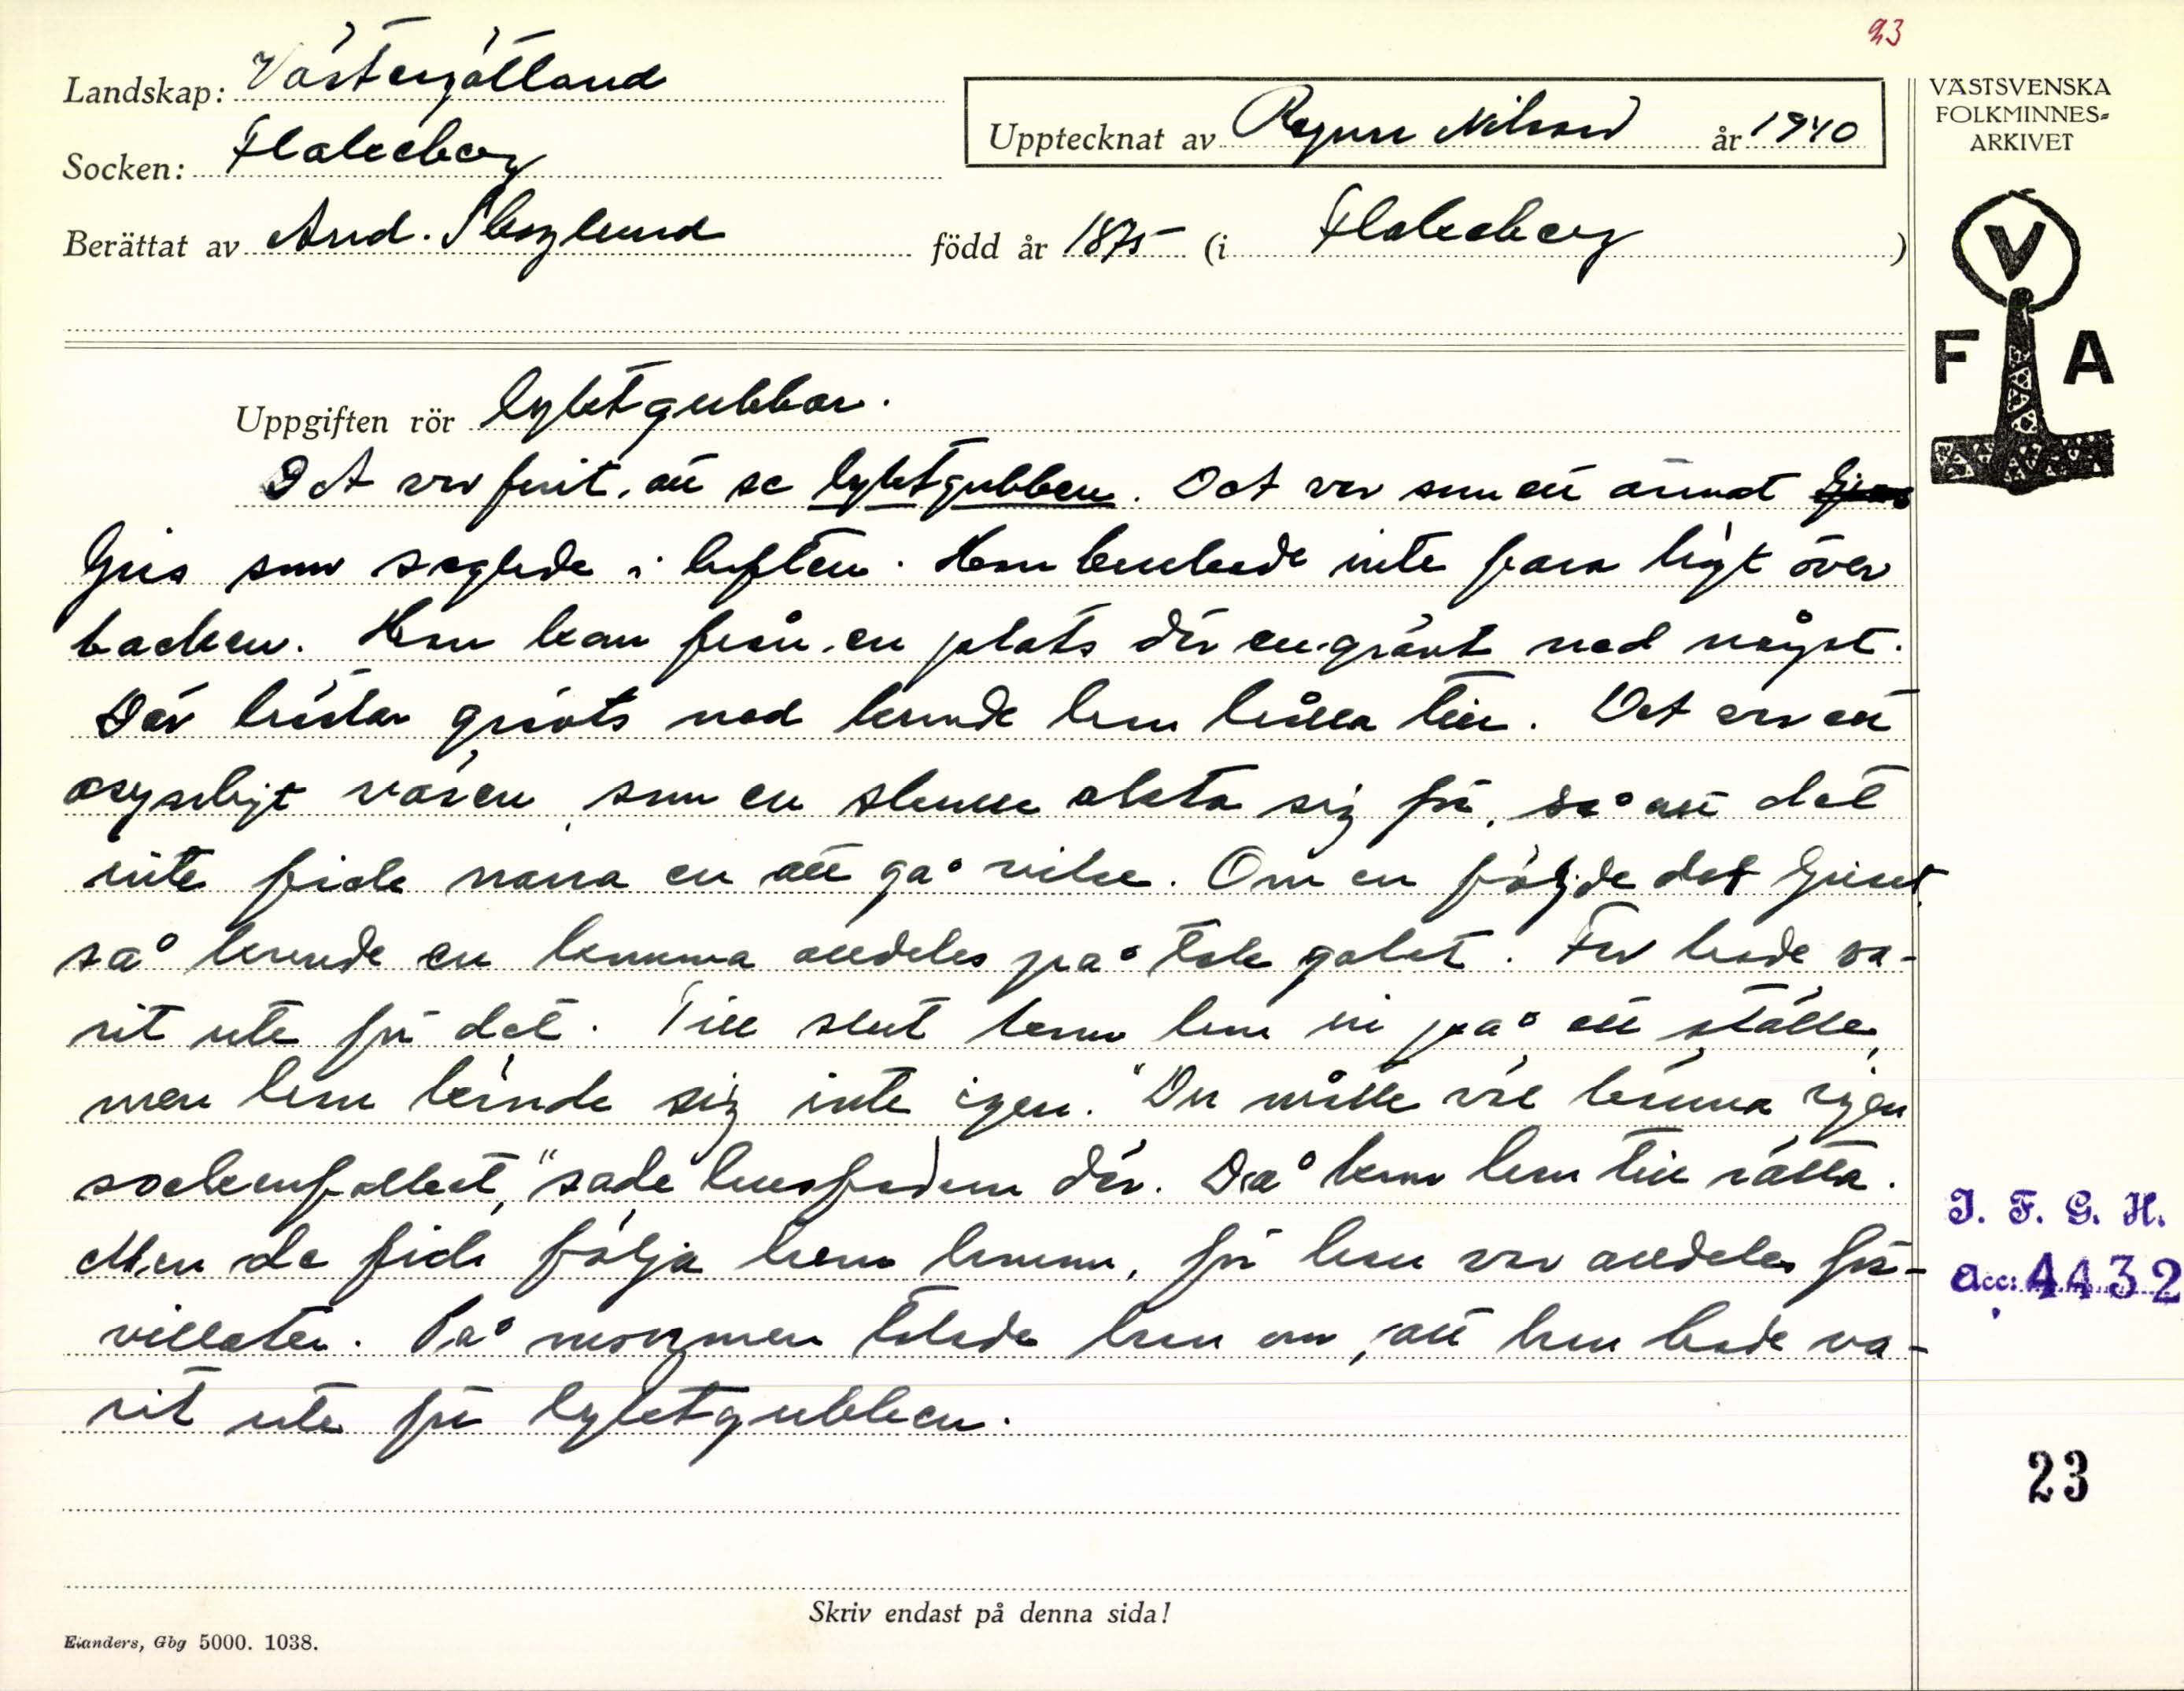 93
Landskap: Västergötland
Socken: Flakeberg
Upptecknat av Ragnar Nilsson år 1940
Berättat av And. Skoglund född år 1875 (i Flakeberg)
VÄSTSVENSKA
FOLKMINNES=
ARKIVET
V
F A
Uppgiften rör lyktgubbar.
Det var fult att se lyktgubben. Det var som ett annat
ljus som seglade i luften. Han brukade inte fara högt över
backen. Han kom från en plats där en grävt ned något.
Där lästar grävts ned kunde han hålla till. Det var ett
osynligt väsen, som en skulle akta sig för, så att det
inte fick narra en att gå vilse. Om en följde det ljuset,
så kunde en komma alldeles på tok galet. Far hade va-
rit ute för det. Till slut kom han in på ett ställe,
men han kände sig inte igen. "Du måtte väl känna igen
sockenfolket," sade husfadern där. Då kom han till rätta.
Men de fick följa hem honom, för han var alldeles för-
villater. På morgonen talade han om, att han hade va-
rit ute för lyktgubben.
I. F. G. H.
Acc: 4432
23
Skriv endast på denna sida!
Elanders, Gbg 5000. 1038.